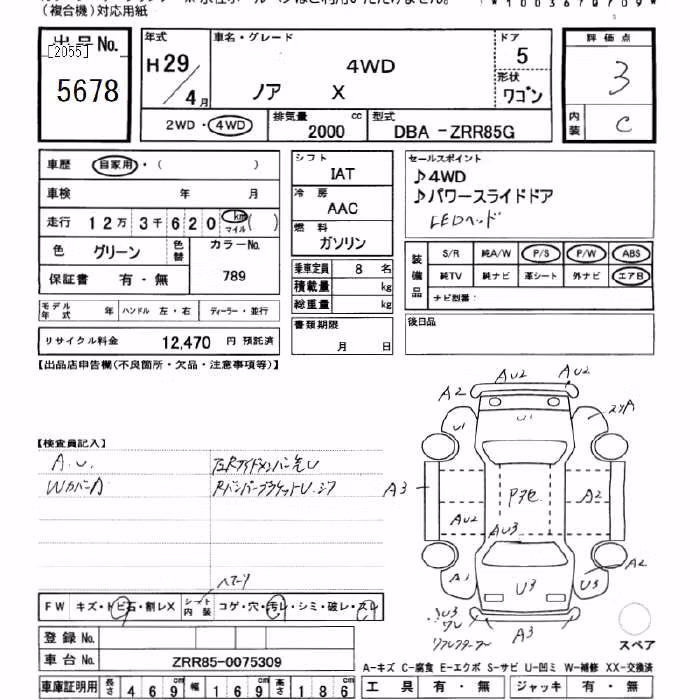 (複合機)対応用紙
出品No. [2055] 5678
年式 H29/4月
車名・グレード 4WD ノア X
ドア 5
形状 ワゴン
評価点 3
内装 C
2WD・4WD
排気量 2000 cc
型式 DBA-ZRR85G
車歴 自家用・( )
車検 年 月
走行 12万3千620 km マイル ( )
色 グリーン 色替 カラーNo. 789
保証書 有・無
モデル年式 年 ハンドル 左・右 ディーラー・並行
リサイクル料金 12,470 円 預託済
シフト IAT
冷房 AAC
燃料 ガソリン
乗車定員 8 名
積載量 kg
総重量 kg
書類期限 月 日
セールスポイント
♪4WD
♪パワースライドドア
LEDヘッド
装備品 S/R 純A/W P/S P/W ABS
純TV 純ナビ 革シート 外ナビ エアB
ナビ型番:
後日品
【出品店申告欄(不良箇所・欠品・注意事項等)】
【検査員記入】
A.U.
AU2 AU2
A2
U1
U1
A3
A2
AU2
AU3
A1
U3
U3
A2
U3
ワレ
A3
FW キズ・トビ石・割レX シート内装 コゲ・穴・汚レ・シミ・破レ・スレ
登録No.
車台No. ZRR85-0075309
スペア
A-キズ C-腐食 E-エクボ S-サビ U-凹ミ W-補修 XX-交換済
車庫証明用 長さ 469 cm 幅 169 cm 高さ 186 cm
工具 有・無 ジャッキ 有・無